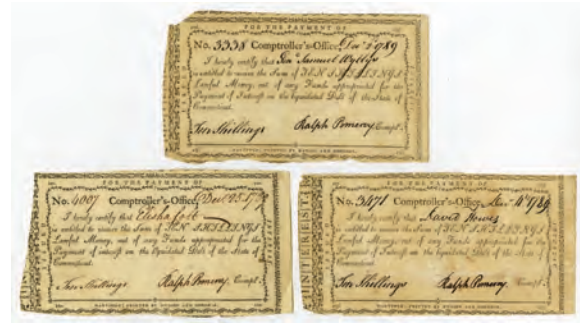 FOR THE PAYMENT OF
No. 3338 Comptroller's-Office, Dec 1789
I hereby certify that Samuel Wyllys
is entitled to receive the Sum of TEN SHILLINGS
Lawful Money, out of any Funds appropriated for the
Payment of Interest on the liquidated Debt of the State of
Connecticut.
Ten Shillings Ralph Pomeroy Compt.
HARTFORD: PRINTED BY HUDSON AND GOODWIN.
FOR THE PAYMENT OF
No. 4007 Comptroller's-Office,
I hereby certify that Elisha
is entitled to receive the Sum of TEN SHILLINGS
Lawful Money, out of any Funds appropriated for the
Payment of interest on the liquidated Debt of the State of
Connecticut.
Ten Shillings Ralph Pomeroy, Compt.
HARTFORD: PRINTED BY HUDSON AND GOODWIN.
FOR THE PAYMENT OF
INTEREST
No. 3471 Comptroller's-Office, 1789
I hereby certify that David
is entitled to receive the Sum of TEN SHILLINGS
Lawful Money, out of any Funds appropriated for the
Payment of Interest on the liquidated Debt of the State of
Connecticut.
Ten Shillings Ralph Pomeroy, Compt.
HARTFORD: PRINTED BY HUDSON AND GOODWIN.